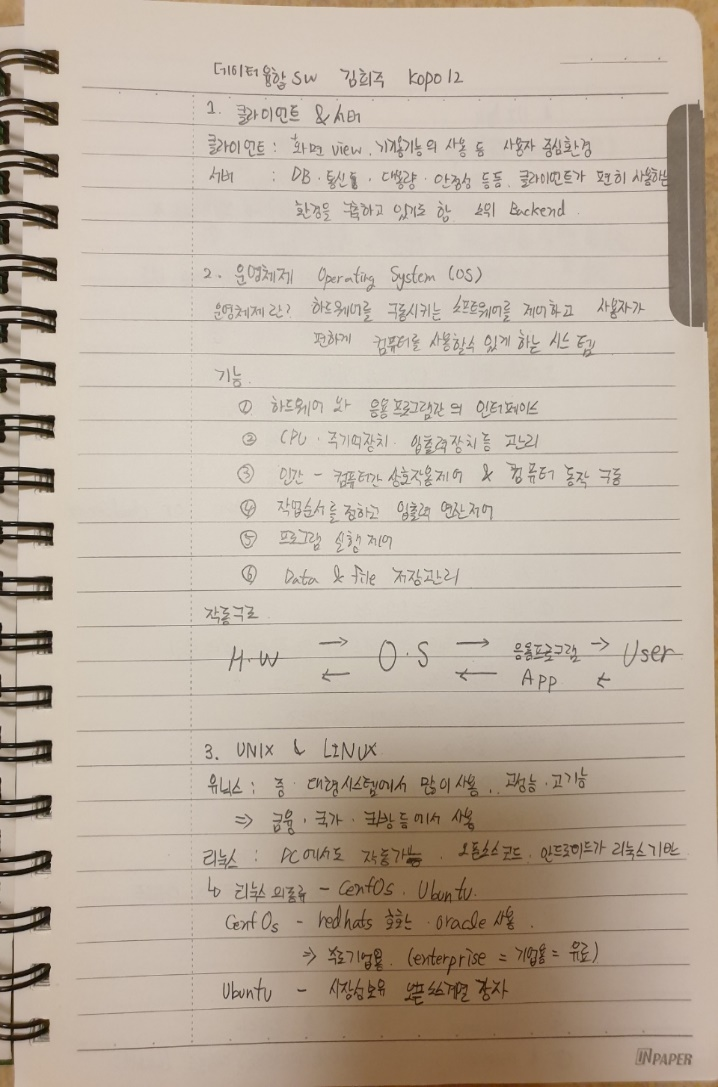 데이터융합SW 김희주 Kopo12
1. 클라이언트 & 서버
클라이언트 : 화면 view, 기기능의 사용 등 사용자 중심환경
서버 : DB · 통신 · 대용량 · 안정성 등등. 클라이언트가 편히 사용하는
환경을 구축하고 있기도 함 소위 Backend.
2. 운영체제 Operating System (OS)
운영체제란? 하드웨어를 구동시키는 소프트웨어를 제어하고 사용자가
편하게 컴퓨터를 사용할수 있게 하는 시스템
기능
① 하드웨어 와 응용프로그램간의 인터페이스
② CPU · 주기억장치 · 입출력장치등 관리
③ 인간 - 컴퓨터간 상호작용제어 & 컴퓨터 동작 구동
④ 작업순서를 정하고 입출력 연산제어
⑤ 프로그램 실행제어
⑥ Data & file 저장관리
작동구조
H·W → ← O·S → ← 응용프로그램 App → ← User
3. UNIX & LINUX
유닉스 : 중 · 대형시스템에서 많이 사용, 고성능 · 고기능
⇒ 금융 · 국가 · 국방등에서 사용
리눅스 : PC에서도 작동가능. 오픈소스코드. 안드로이드가 리눅스기반
↳ 리눅스의종류 - CentOs. Ubuntu.
CentOs - redhats 호환 · oracle 사용.
⇒ 주로기업용. (enterprise = 기업용 = 유료)
Ubuntu - 시장성보유 오픈소스계열 강자
INPAPER